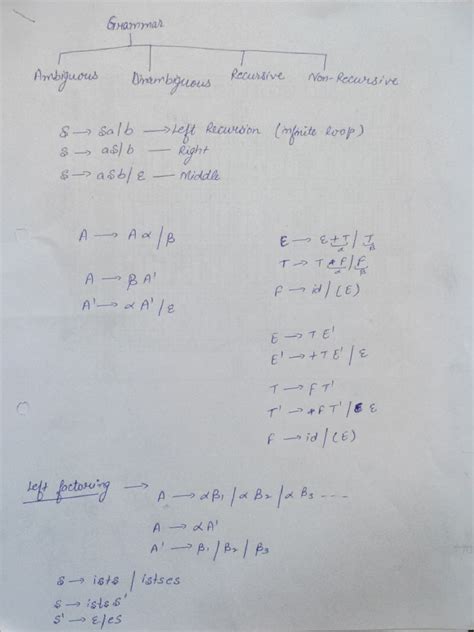 Grammar
Ambiguous Disambiguous Recursive Non-Recursive
S → Sa/b → Left Recursion (infinite loop)
S → aS/b — Right
S → aSb/ε — Middle
A → Aα/β
A → βA'
A' → αA'/ε
E → E+T/T
α β
T → T*F/F
α β
F → id/(E)
E → TE'
E' → +TE'/ε
T → FT'
T' → *FT'/ε
F → id/(E)
Left factoring →
A → αβ1/αβ2/αβ3 ----
A → αA'
A' → β1/β2/β3
S → iSts / iStses
S → iSts S'
S' → ε/es